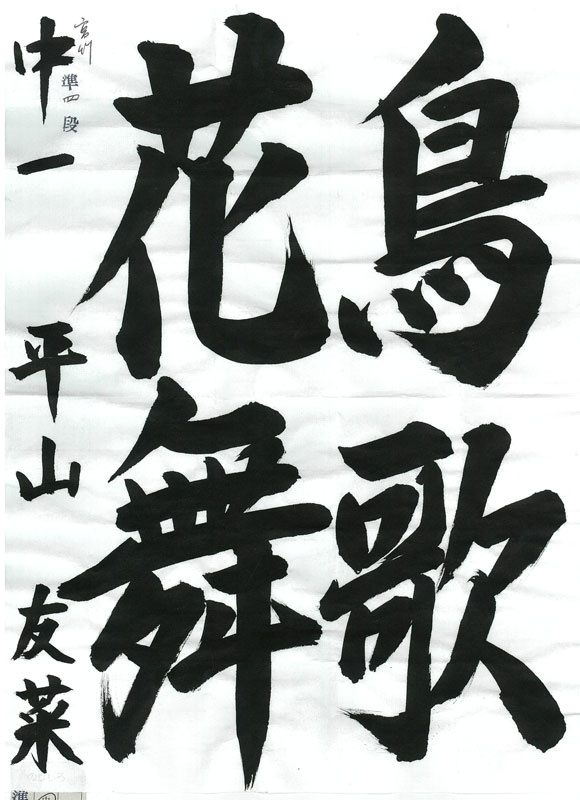 鳥歌
花舞
準四段
中一 平山友菜